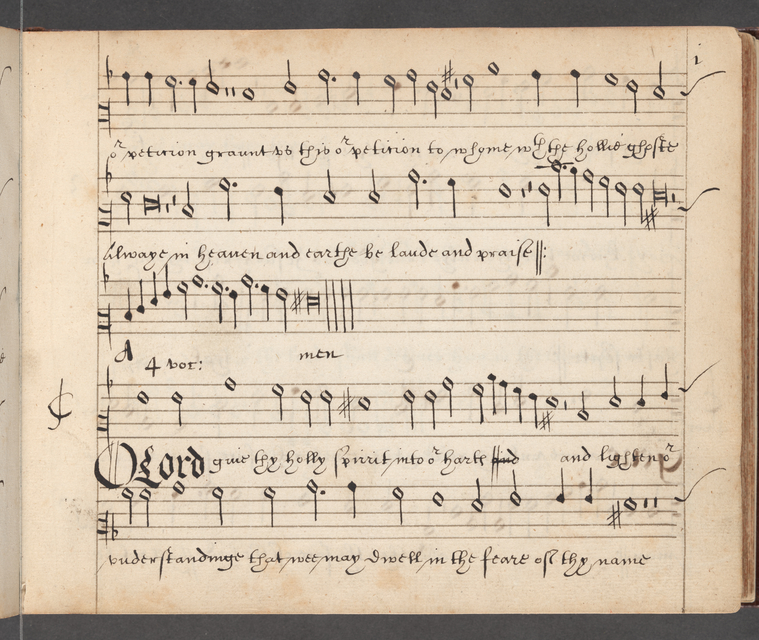 i
oʳ peticion graunt vs this oʳ peticion to whome wᵗʰ the hollie ghoste
Alwaye in heaven and earthe be laude and praise
A men
4 voc:
O Lord giue thy holly spirrit into oʳ harts and and lighten oʳ
vnderstandinge that wee may dwell in the feare off thy name